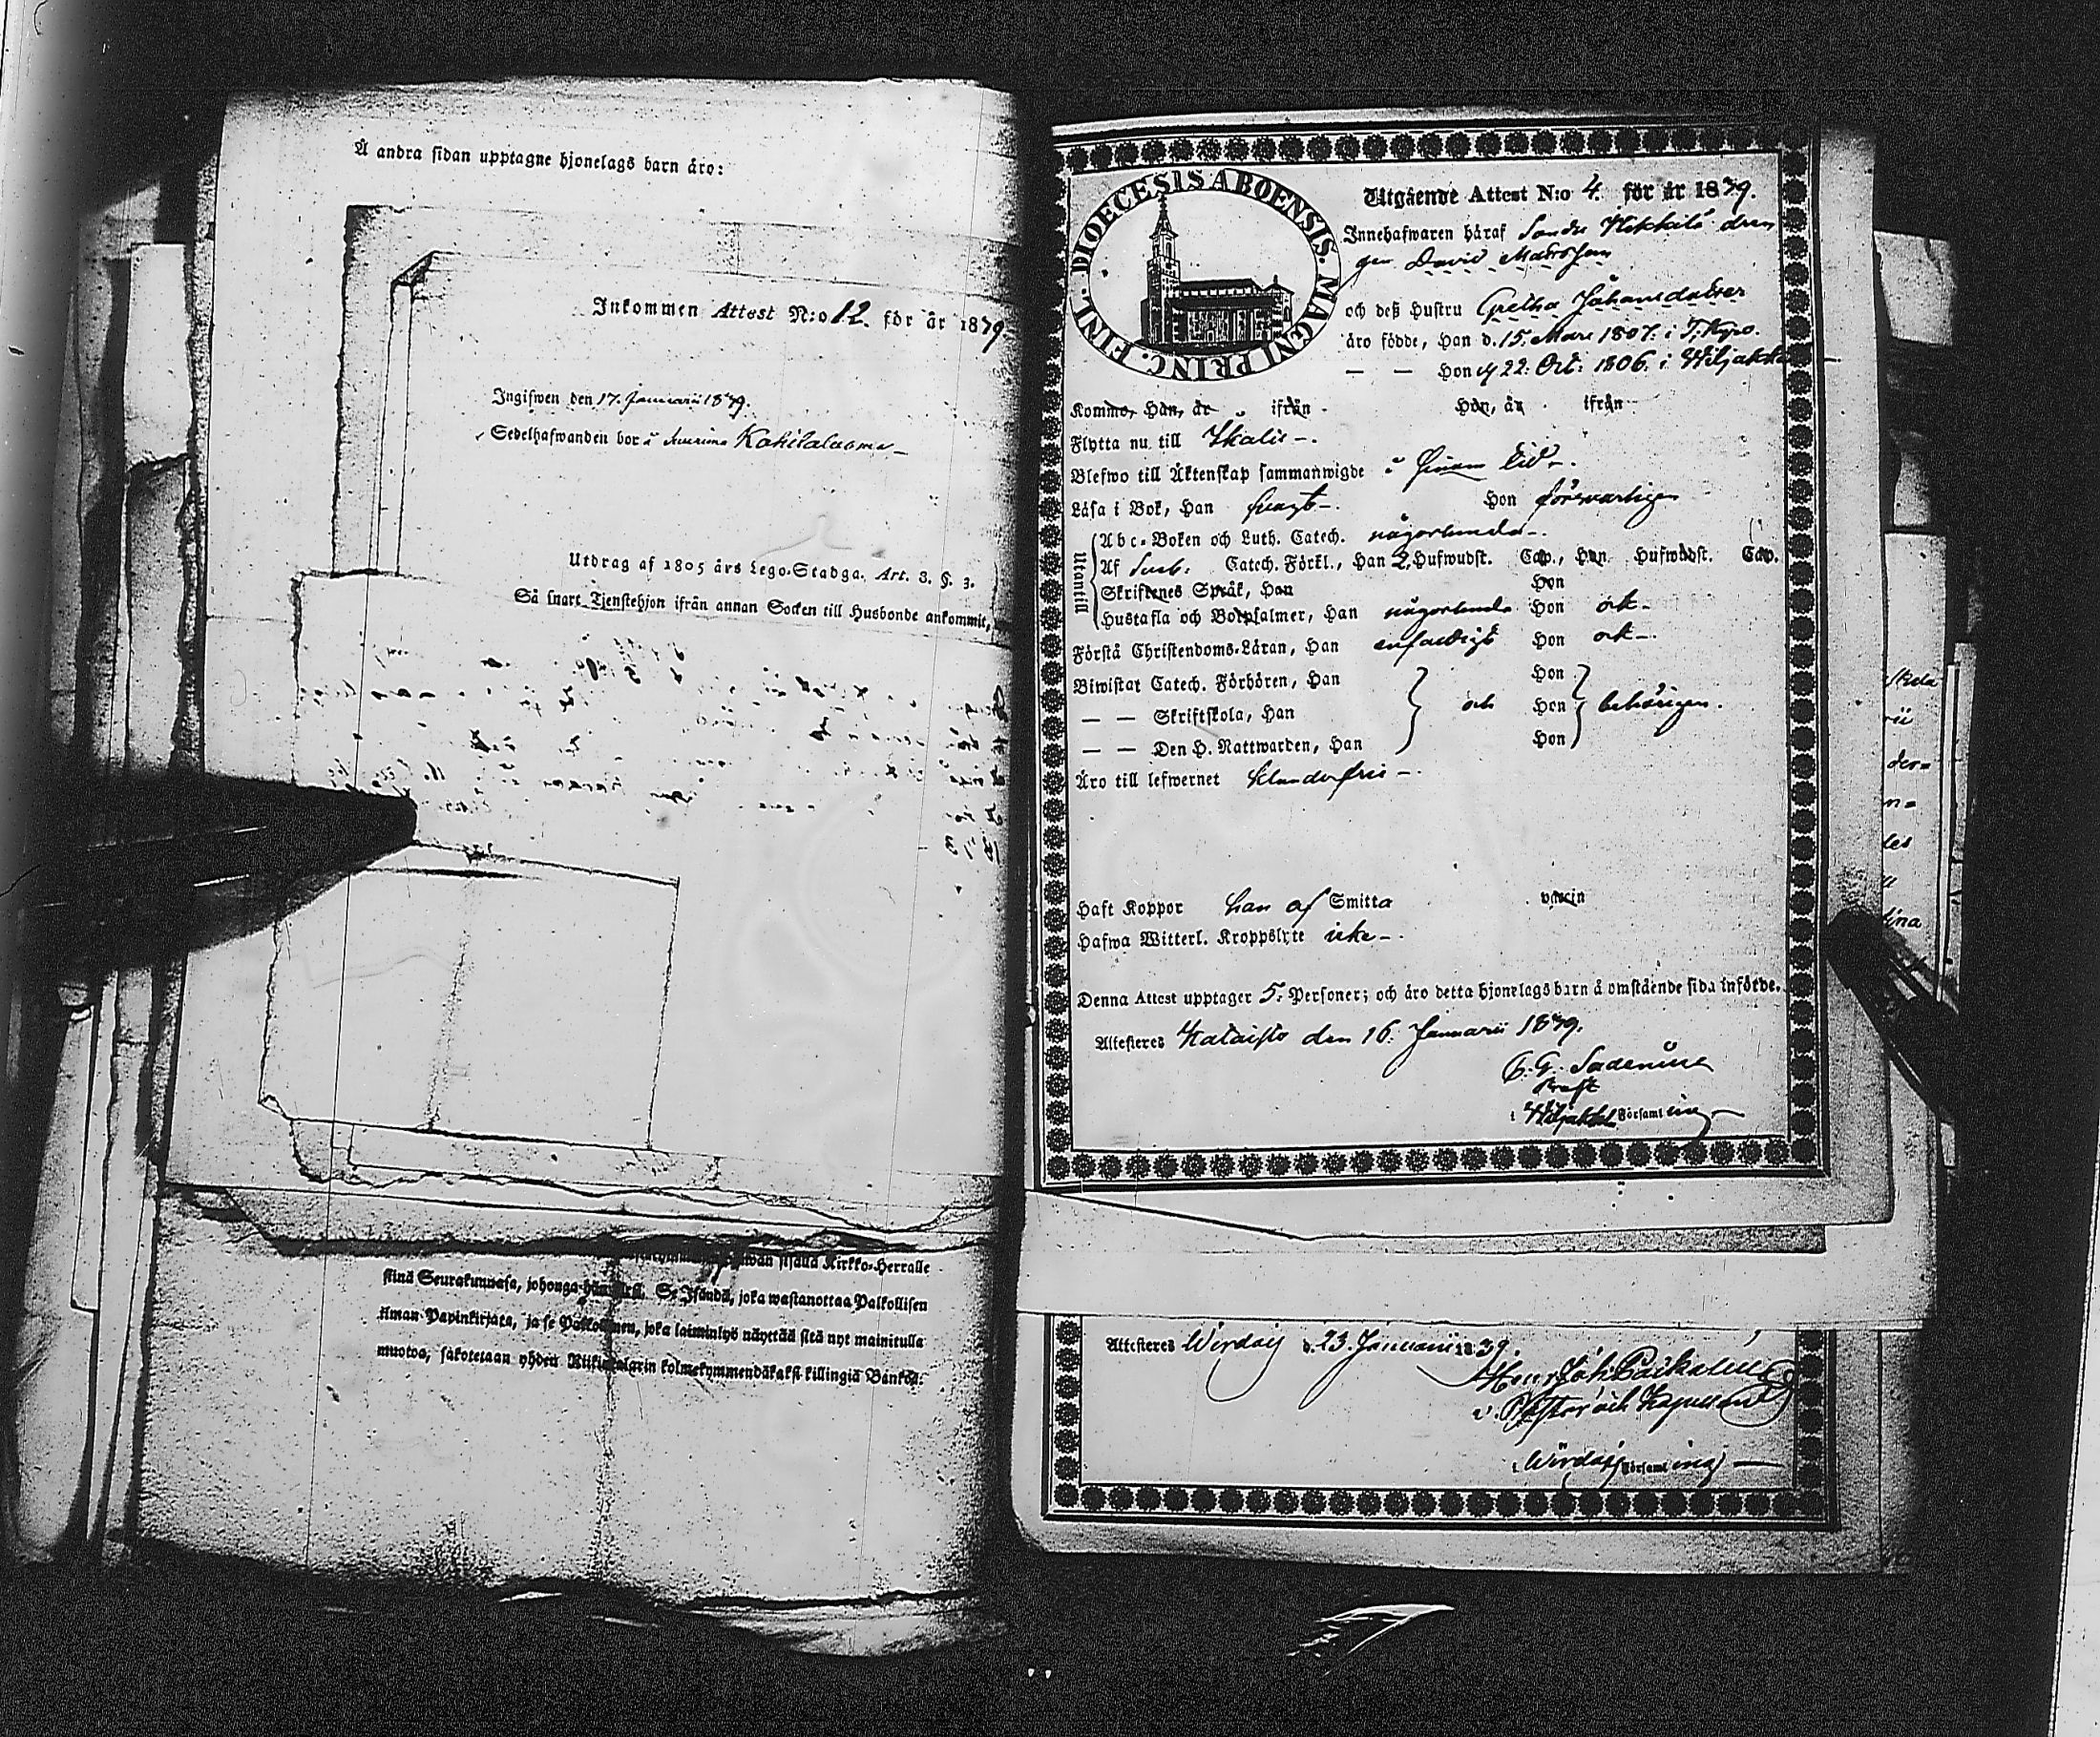 Å andra sidan upptagne hjonelags barn äro:
Inkommen Attest N:o 12. för år 1839.
Ingifwen den 17. Januarii 1839.
Sedelhafwanden bor å
Utdrag af 1805 års Lego-Stadga. Art. 3. §. 3.
Så snart Tjenstehjon ifrån annan Socken till Husbonde ankommit,
sisälle Kirkko-Herralle
siinä Seurakunnasa, johonga hän Se Isändä, joka wastanottaa Palkollisen
ilman Papinkirjata, ja se Palkollinen, joka laiminlyö näyttää sitä nyt mainitulla
muotoa, sakotetaan yhden Riikintalarin kolmekymmendäkaksi killingiä Bankos.
FINL. DIOECESIS ABOENSIS. MAGNI PRINC.
Utgående Attest N:o 4. för år 1839.
Innehafwaren häraf dren
gen David Mattsson
och deß Hustru Gretha Johansdotter
äro födde, Han d. 15. Mars 1807. i T. Kyro.
— — Hon d 22. Oct: 1806. i Wiljakkala
Kommo, Han, år ifrån Hon, år ifrån
Flytta nu till Ikalis -.
Blefwo till Äktenskap sammanwigde i sinom tid -.
Läsa i Bok, Han swagt -. Hon försvarligen
Utantill
Abc-Boken och Luth. Catech. någorlunda -.
Af Sveb. Catech. Förkl., Han 2. Hufwudst. Cap., Hon Hufwudst. Cap.
Skriftenes Språk, Han Hon
Hustafla och Botpsalmer, Han någorlunda Hon ock -
Förstå Christendoms-Läran, Han enfaldigt Hon ock -.
Biwistat Catech. Förhören, Han Hon
— — Skriftskola, Han och Hon behörigen.
— — Den H. Nattwarden, Han Hon
Äro till lefwernet klanderfrie -.
Haft Koppor han af Smitta vaccin
Hafwa Witterl. Kroppslyte icke -.
Denna Attest upptager 5. Personer; och äro detta hjonelags barn å omstående sida införde.
Attesteras den 16. Januarii 1839.
i Wiljakkala Församling
Attesteras Wirdois d. 23. Januarii 1839.
v. Pastor och Kapellan
i Wirdois Församling —